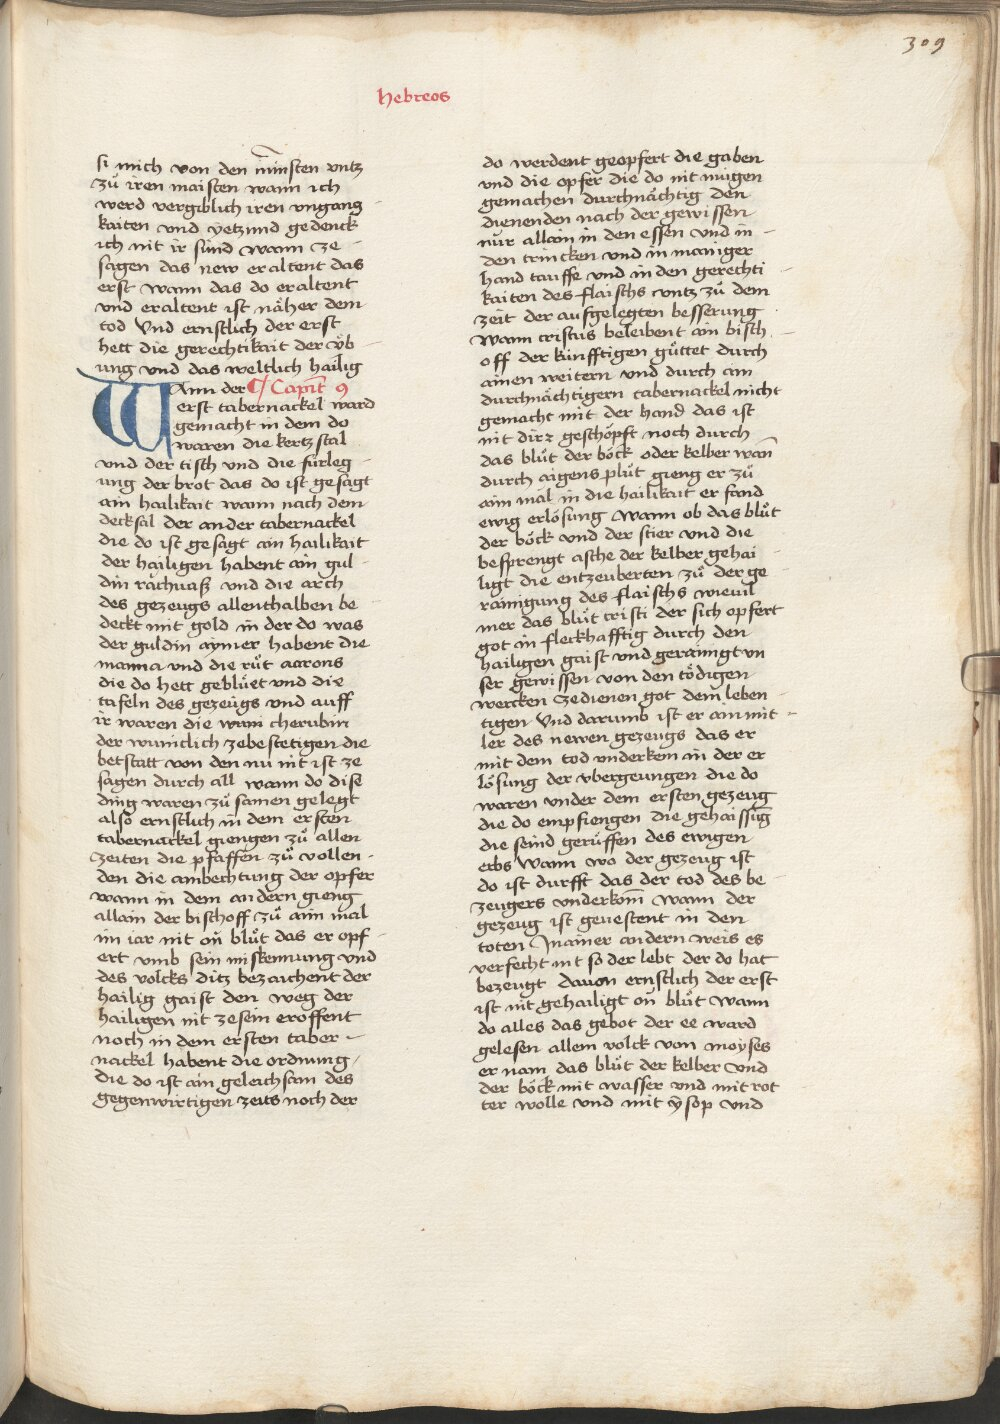 309
hebreos
si mich von den minsten vntz
zů iren maisten wann ich
werd vergiblich iren vngang
kaiten vnd yetzund gedenck
ich nit ir sünd wann ze
sagen das new eraltent das
erst wann das do eraltent
vnd eraltent ist näher dem
tod Vnd ernstlich der erst
hett die gerechtikait der vͤb
ung vnd das weltlich hailig
WAnn der ¶ Capit̄ 9
erst tabernackel ward
gemacht in dem do
waren die kertzstal
vnd der tisch vnd die fürleg
ung der brot das do ist gesagt
ain hailikait wann nach dem
decksal der ander tabernackel
die do ist gesagt ain hailikait
der hailigen habent ain gul
din rächuaß vnd die arch
des gezeugs allenthalben be
deckt mit gold in der do was
der guldin aymer habent die
manna vnd die růt aarons
die do hett geblüet vnd die
tafeln des gezeugs vnd auff
ir waren die wuni cherubin
der wunitlich zebestetigen die
betstatt von den nu nit ist ze
sagen durch all wann do dise
ding waren zů samen gelegt
also ernstlich in dem ersten
tabernackel giengen zů allen
zeiten die pfaffen zů vollen
den die ambechtung der opfer
wann in dem andern gieng
allain der bischoff zů aim mal
im iar nit on̄ blůt das er opf
ert vmb sein miskennung vnd
des volcks ditz bezaichent der
hailig gaist den weg der
hailigen nit ze sein eroffent
noch in dem ersten taber
nackel habent die ordnung
die do ist ain geleichsam des
gegenwirtigen zeits noch der
do werdent geopfert die gaben
vnd die opfer die do nit mügen
gemachen durchnächtig den
dienenden nach der gewissen
nur allain in den essen vnd in
den trincken vnd in maniger
hand tauffe vnd in den gerechti
kaiten des flaischs vntz zů dem
zeit der aufgelegten besserung
Wann cristus beleibent ain bisch
off der künfftigen güttet durch
ainen weitern vnd durch ain
durchnächtigern tabernackel nicht
gemacht mit der hand das ist
nit dirz geschöpft noch durch
das blůt der böck oder kelber wan̄
durch aigens plůt gieng er zů
aim mal in die hailikait er fand
ewig erlösung Wann ob das blůt
der böck vnd der stier vnd die
besprengt asche der kelber gehai
ligt die entzeuberten zů der ge
rainigung des flaischs wieuil
mer das blůt cristi der sich opfert
got in fleckhafftig durch den
hailigen gaist vnd gerainigt vn
ser gewissen von den tödigen
wercken ze dienen got dem leben
tigen Vnd darumb ist er ain mit
ler des newen gezeugs das er
mit dem tod vnderkem in der er
lösung der vbergeungen die do
waren vnder dem ersten gezeug
die do empfiengen die gehaissūg
die seind gerüffen des ewigen
erbs Wann wo der gezeug ist
do ist durfft das der tod des be
zeugers vnderkom̄ wann der
gezeug ist geuestent in den
toten In ainer andern weis es
verfecht nit so der lebt der do hat
bezeugt dauon ernstlich der erst
ist nit gehailigt on̄ blůt wann
do alles das gebot der ee ward
gelesen allem volck von moyses
er nam das blůt der kelber vnd
der böck mit wasser vnd mit rot
ter wolle vnd mit ysop vnd